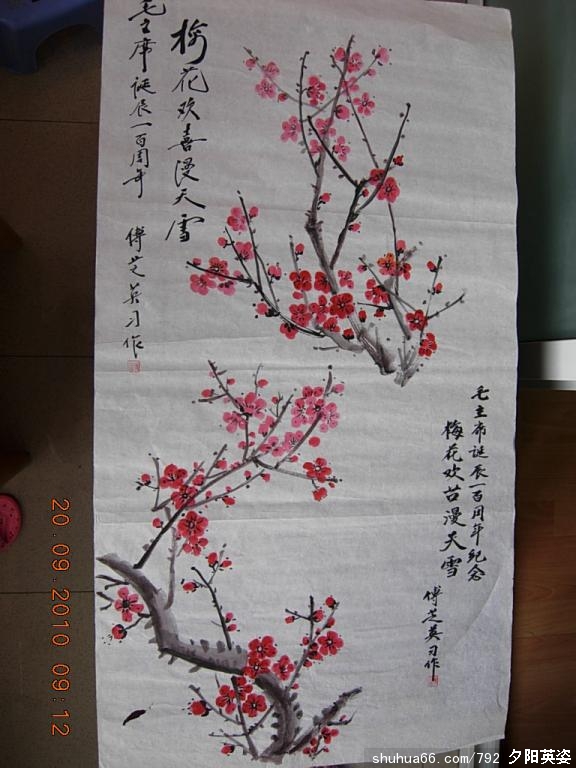 梅花欢喜漫天雪
毛主席诞辰一百周年
傅芝英习作
毛主席诞辰一百周年纪念
梅花欢喜漫天雪
傅芝英习作
20.09.2010 09:12
shuhua66.com/792 夕阳英姿